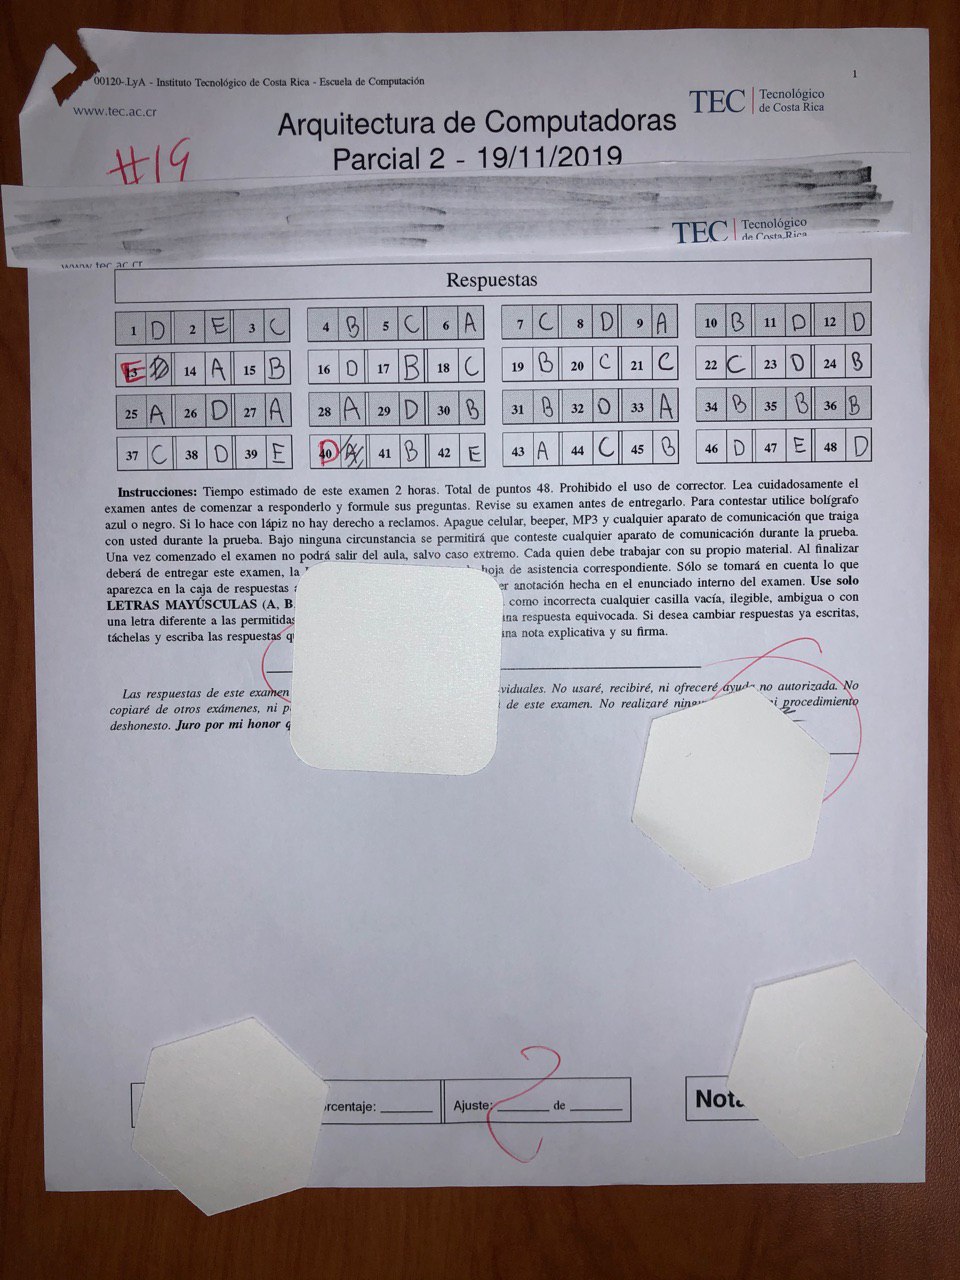 1
00120-.LyA - Instituto Tecnológico de Costa Rica - Escuela de Computación
www.tec.ac.cr
TEC | Tecnológico de Costa Rica
Arquitectura de Computadoras
#19
Parcial 2 - 19/11/2019
TEC | Tecnológico de Costa Rica
www.tec.ac.cr
Respuestas
1 D 2 E 3 C 4 B 5 C 6 A 7 C 8 D 9 A 10 B 11 D 12 D
13 E 14 A 15 B 16 D 17 B 18 C 19 B 20 C 21 C 22 C 23 D 24 B
25 A 26 D 27 A 28 A 29 D 30 B 31 B 32 D 33 A 34 B 35 B 36 B
37 C 38 D 39 E 40 D 41 B 42 E 43 A 44 C 45 B 46 D 47 E 48 D
Instrucciones: Tiempo estimado de este examen 2 horas. Total de puntos 48. Prohibido el uso de corrector. Lea cuidadosamente el
examen antes de comenzar a responderlo y formule sus preguntas. Revise su examen antes de entregarlo. Para contestar utilice bolígrafo
azul o negro. Si lo hace con lápiz no hay derecho a reclamos. Apague celular, beeper, MP3 y cualquier aparato de comunicación que traiga
con usted durante la prueba. Bajo ninguna circunstancia se permitirá que conteste cualquier aparato de comunicación durante la prueba.
Una vez comenzado el examen no podrá salir del aula, salvo caso extremo. Cada quien debe trabajar con su propio material. Al finalizar
deberá de entregar este examen, la hoja de asistencia correspondiente. Sólo se tomará en cuenta lo que
aparezca en la caja de respuestas anotación hecha en el enunciado interno del examen. Use solo
LETRAS MAYÚSCULAS (A, B, como incorrecta cualquier casilla vacía, ilegible, ambigua o con
una letra diferente a las permitidas una respuesta equivocada. Si desea cambiar respuestas ya escritas,
táchelas y escriba las respuestas una nota explicativa y su firma.
Las respuestas de este examen No usaré, recibiré, ni ofreceré ayuda no autorizada. No
copiaré de otros exámenes, ni de este examen. No realizaré procedimiento
deshonesto. Juro por mi honor
Ajuste: de